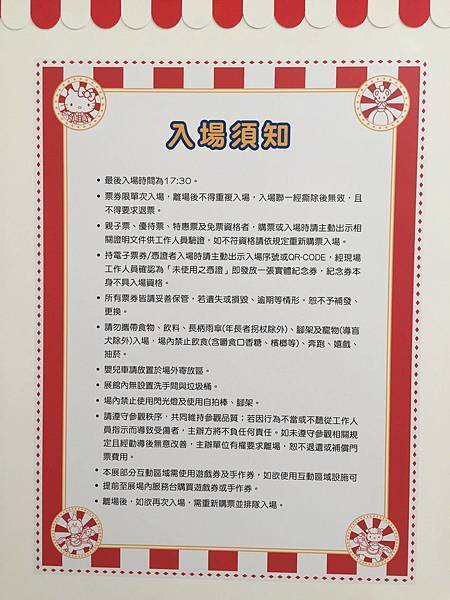 入場須知
• 最後入場時間為17:30。
• 票券限單次入場，離場後不得重複入場，入場聯一經撕除後無效，且
不得要求退票。
• 親子票、優待票、特惠票及免票資格者，購票或入場時請主動出示相
關證明文件供工作人員驗證，如不符資格請依規定重新購票入場。
• 持電子票券/憑證者入場時請主動出示入場序號或QR-CODE，經現場
工作人員確認為「未使用之憑證」即發放一張實體紀念券，紀念券本
身不具入場資格。
• 所有票券皆請妥善保管，若遺失或損毀、逾期等情形，恕不予補發、
更換。
• 請勿攜帶食物、飲料、長柄雨傘(年長者拐杖除外)、腳架及寵物(導盲
犬除外)入場，場內禁止飲食(含嚼食口香糖、檳榔等)、奔跑、嬉戲、
抽菸。
• 嬰兒車請放置於場外寄放區。
• 展館內無設置洗手間與垃圾桶。
• 場內禁止使用閃光燈及使用自拍棒、腳架。
• 請遵守參觀秩序，共同維持參觀品質；若因行為不當或不聽從工作人
員指示而導致受傷者，主辦方將不負任何責任。如未遵守參觀相關規
定且經勸導後無意改善，主辦單位有權要求離場，恕不退還或補償門
票費用。
• 本展部分互動區域需使用遊戲券及手作券，如欲使用互動區域設施可
• 提前至展場內服務台購買遊戲券或手作券。
• 離場後，如欲再次入場，需重新購票並排隊入場。